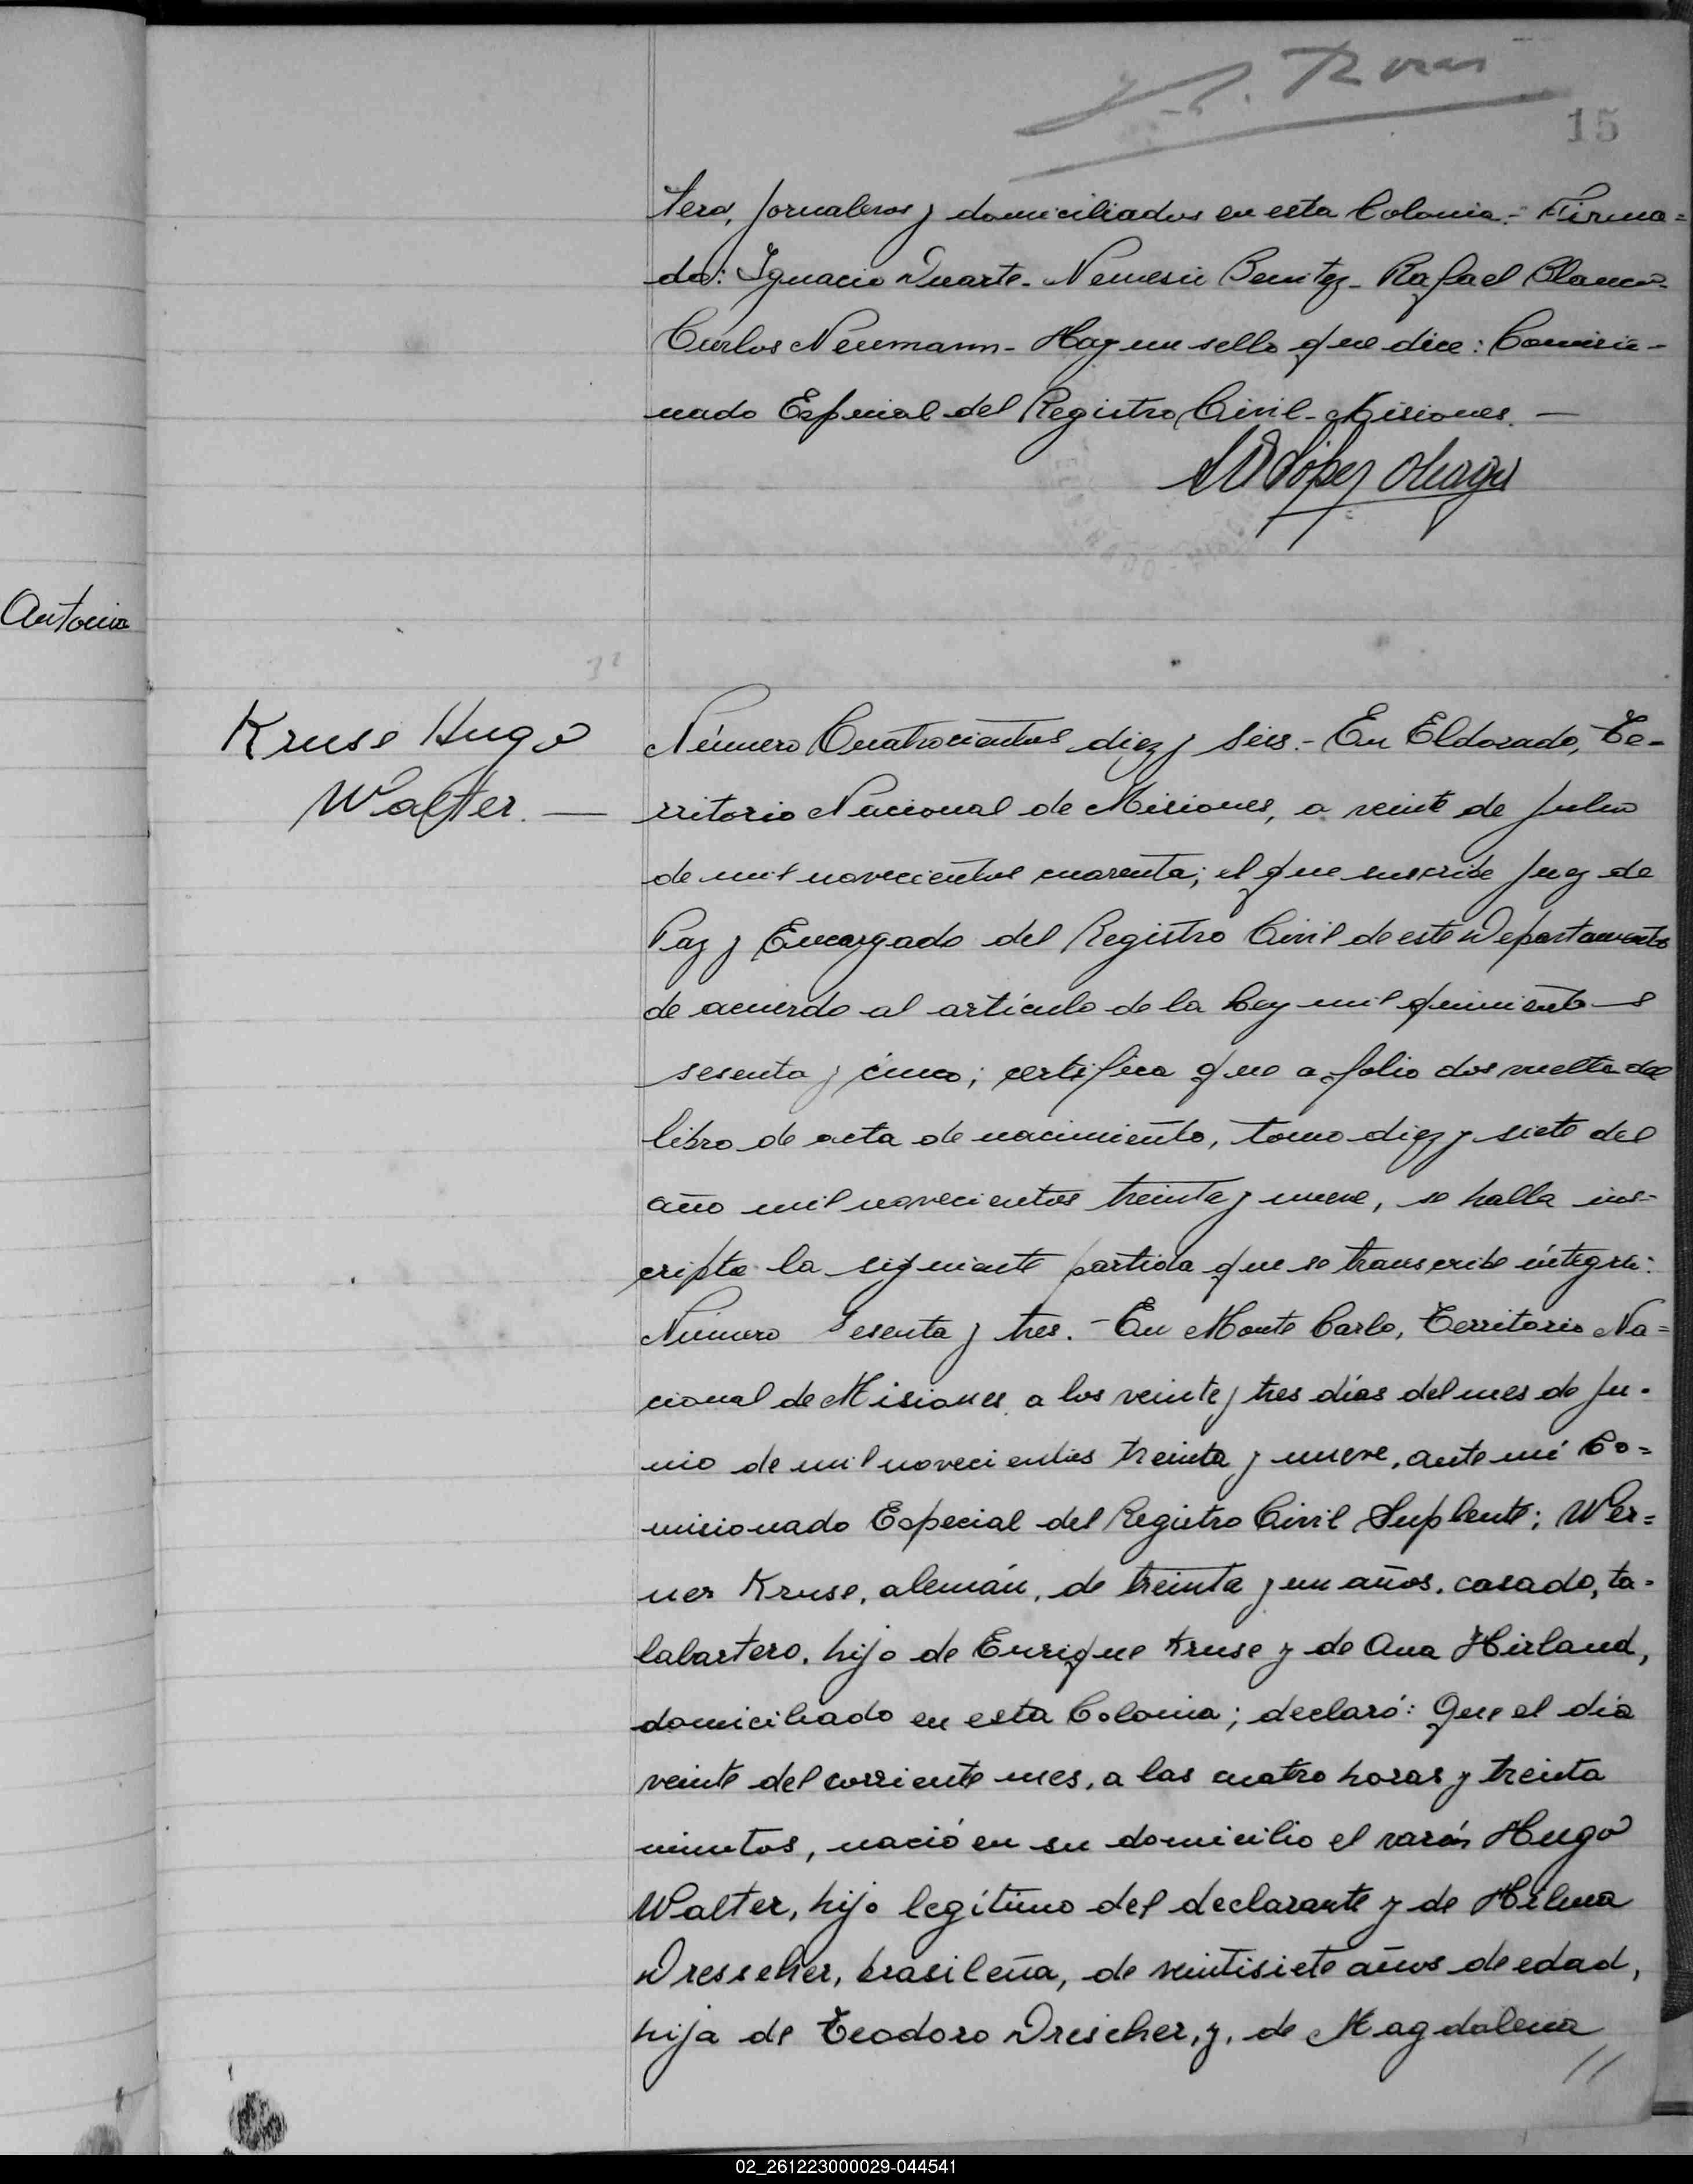 15
tero, jornaleros y domiciliados en esta Colonia.- Firma=
do: Ignacio Duarte- Nemesio Benitez- Rafael Blanco-
Carlos Neumann- Hay un sello que dice: Comisio-
nado Especial del Registro Civil- Misiones.—
Antonia
Kruse Hugo
Walter.—
Número Cuatrocientos diez y seis.- En Eldorado, Te-
rritorio Nacional de Misiones, a veinte de Julio
de mil novecientos cuarenta; el que suscribe Juez de
Paz y Encargado del Registro Civil de este Departamento
de acuerdo al artículo de la Ley mil quinientos
sesenta y cinco; certifica que a folio dos vuelta del
libro de acta de nacimiento, tomo diez y siete del
año mil novecientos treinta y nueve, se halla ins-
cripta la siguiente partida que se transcribe íntegra:
Número Sesenta y tres.- En Monte Carlo, Territorio Na=
cional de Misiones, a los veinte y tres días del mes de Ju-
nio de mil novecientos treinta y nueve, ante mí Co=
misionado Especial del Registro Civil Suplente; Wer=
ner Kruse, alemán, de treinta y un años, casado, ta-
labartero, hijo de Enrique Kruse y de Ana Hirland,
domiciliado en esta Colonia; declaró: Que el día
veinte del corriente mes, a las cuatro horas y treinta
minutos, nació en su domicilio el varón Hugo
Walter, hijo legítimo del declarante y de Hilma
Dresscher, brasileña, de veintisiete años de edad,
hija de Teodoro Drescher, y, de Magdalena
//
02_261223000029-044541